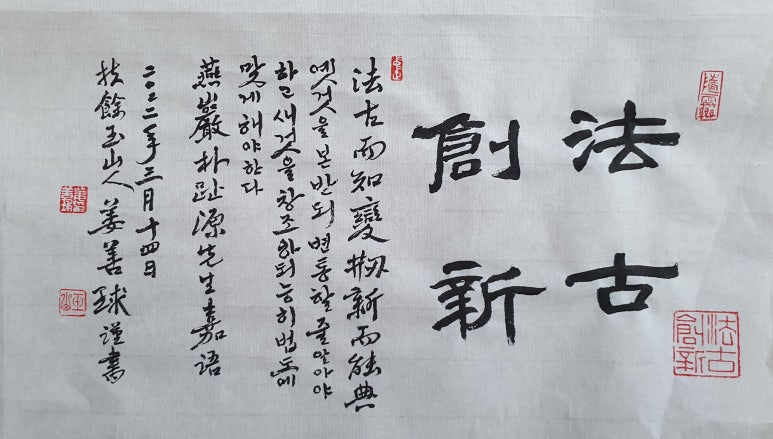 法古
創新
法古而知變刱新而能典
옛것을 본받되 변통할 줄 알아야
하고 새것을 창조하되 능히 법도에
맞게 해야한다
燕巖朴趾源先生嘉語
二〇二二年三月十四日
扶餘玉山人 姜善球 謹書
法古
創新